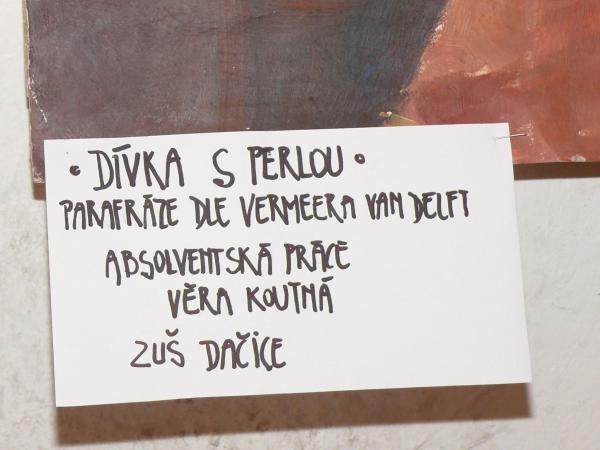 • DÍVKA S PERLOU •
PARAFRÁZE DLE VERMEERA VAN DELFT
ABSOLVENTSKÁ PRÁCE
VĚRA KOUTNÁ
ZUŠ DAČICE